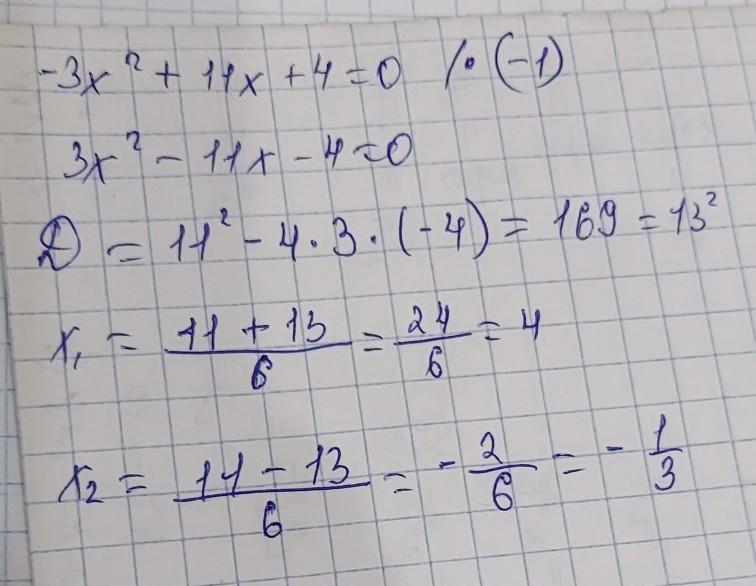 -3x² + 11x + 4 = 0 /· (-1)
3x² - 11x - 4 = 0
D = 11² - 4 · 3 · (-4) = 169 = 13²
x₁ = (11 + 13)/6 = 24/6 = 4
x₂ = (11 - 13)/6 = - 2/6 = - 1/3